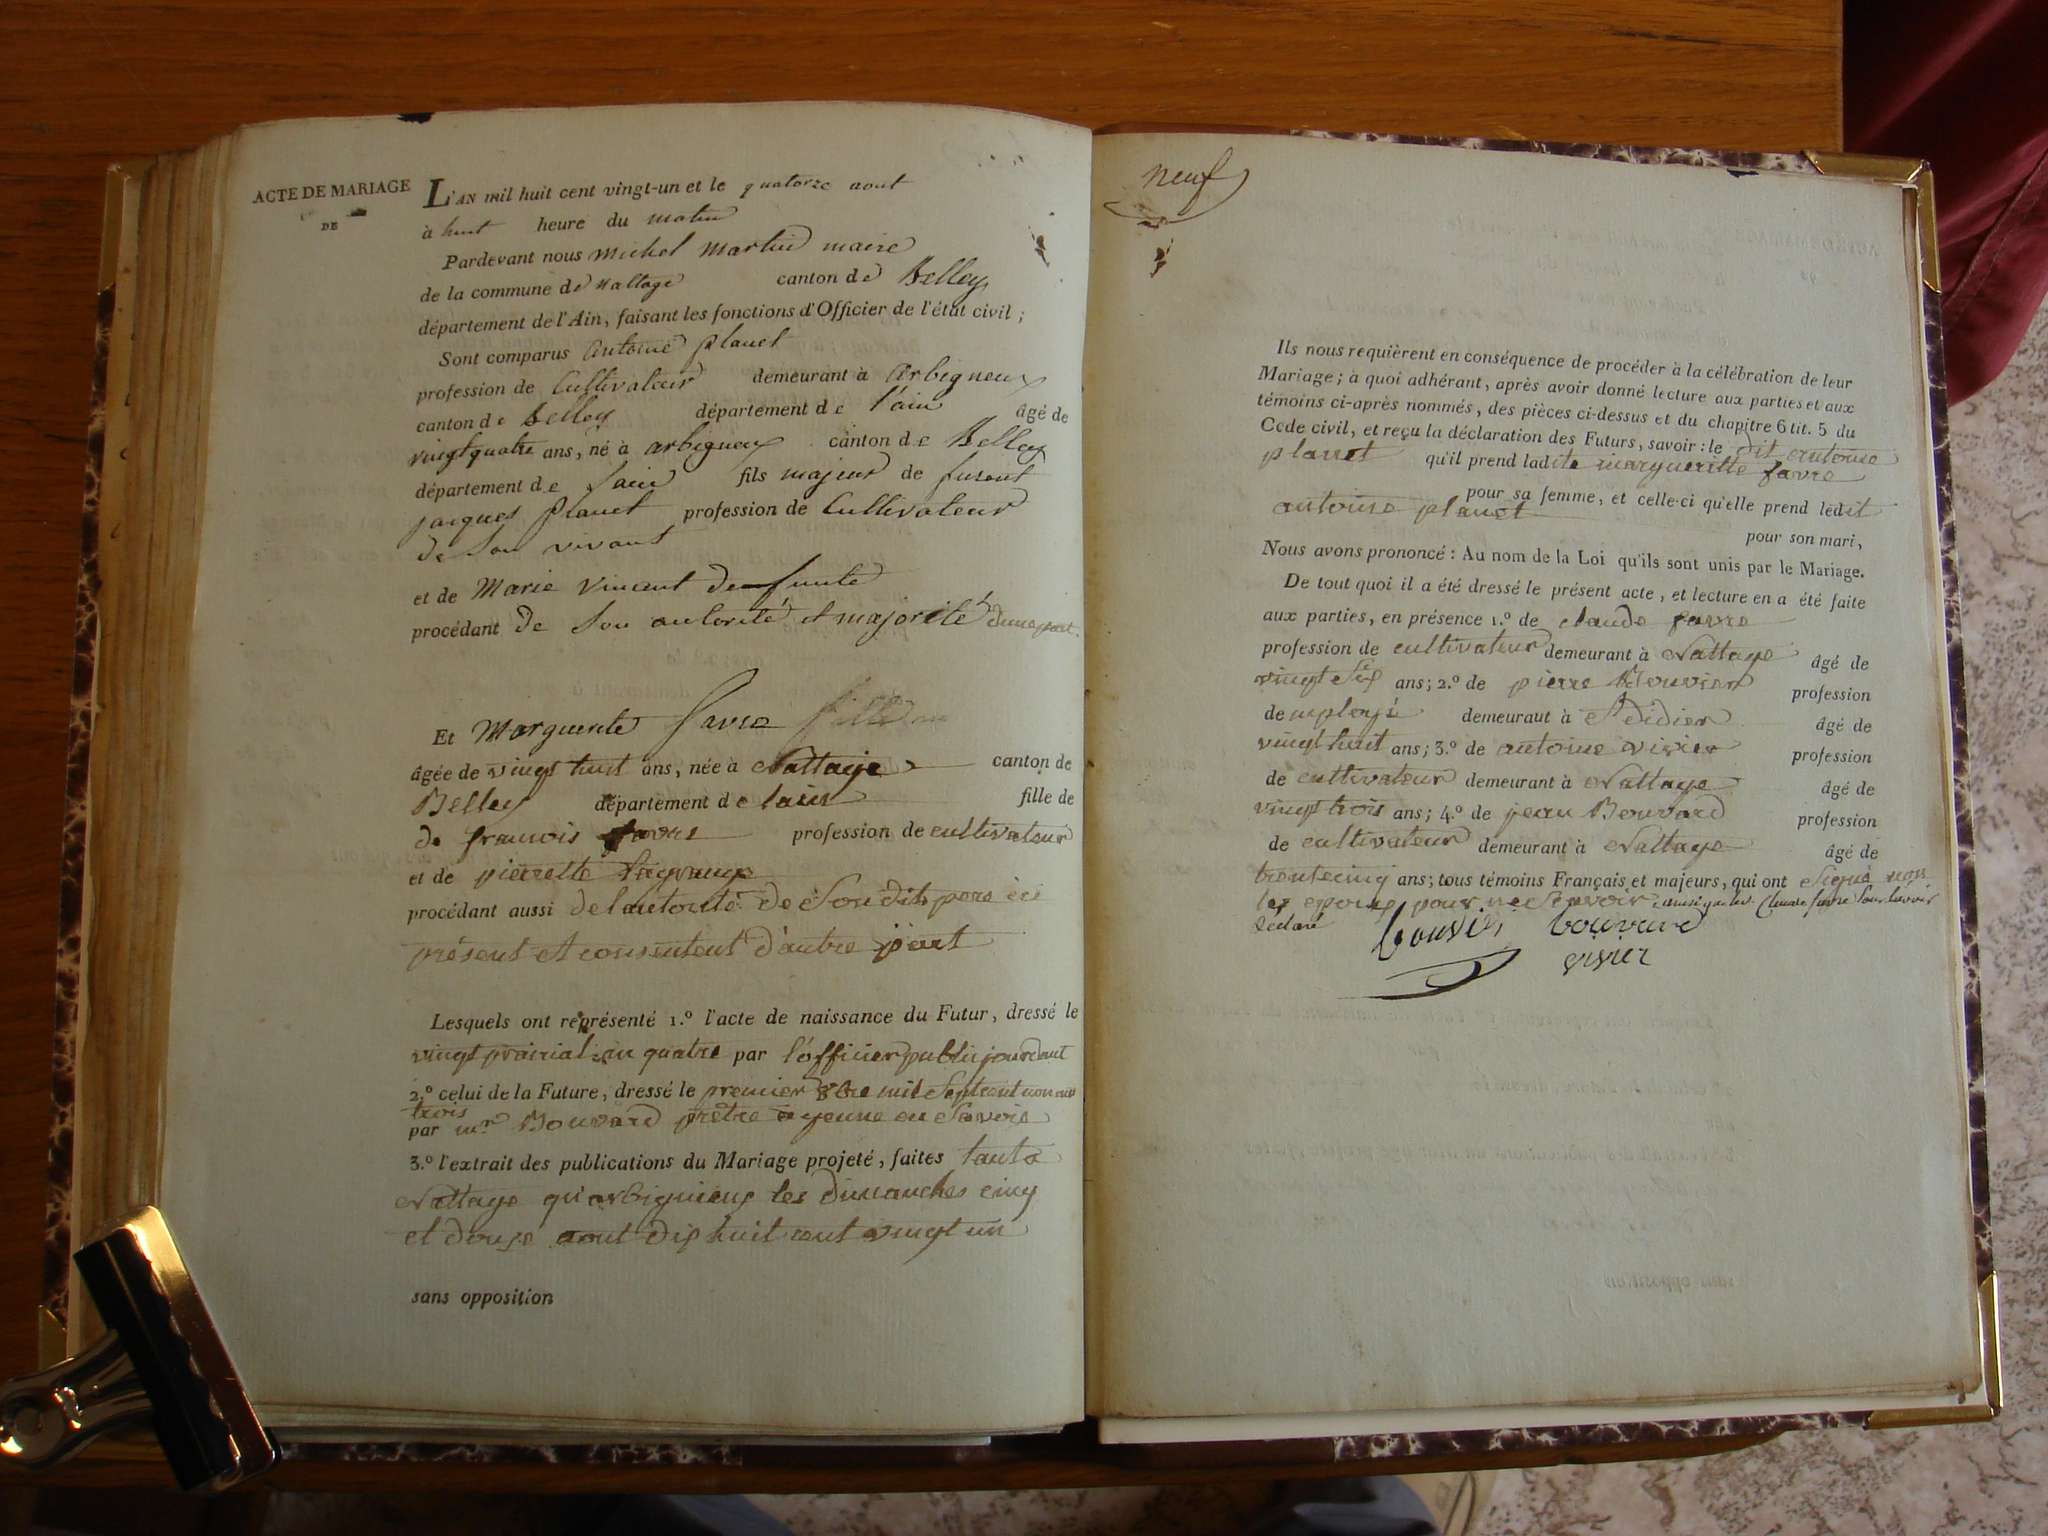 ACTE DE MARIAGE
DE
L'AN mil huit cent vingt-un et le quatorze aout
à huit heure du matin
Pardevant nous michel martin maire
de la commune de nattage canton de Belley
département de l'Ain, faisant les fonctions d'Officier de l'état civil ;
Sont comparus antoine planet
profession de Cultivateur demeurant à arbigneux
canton de Belley département de l'ain âgé de
vingt quatre ans, né à arbigneux canton de Belley
département de l'ain fils majeur de furent
jacques planet profession de Cultivateur
de son vivant
et de Marie vincent defunte
procédant de Son autorité et majorité d'une part.
Et Marguerite favre fille
âgée de vingt huit ans, née à Nattage canton de
Belley département de lain fille de
de francois favre profession de cultivateur
et de pierrette
procédant aussi de l'autorité de Son dit pere ici
présent et consentent d'autre part
Lesquels ont représenté 1.º l'acte de naissance du Futur, dressé le
vingt prairial an quatre par l'officier public jourdant
2.º celui de la Future, dressé le premier 8bre mil Sept cent
trois
par mr Bouvard prêtre a yenne en Savoie
3.º l'extrait des publications du Mariage projeté, faites tant a
Nattage qu'arbignieux les dimanches cinq
et douze aout dix huit cent vingt un
sans opposition
neuf
Ils nous requièrent en conséquence de procéder à la célébration de leur
Mariage ; à quoi adhérant, après avoir donné lecture aux parties et aux
témoins ci-après nommés, des pièces ci-dessus et du chapitre 6 tit. 5 du
Code civil, et reçu la déclaration des Futurs, savoir : le dit antoine
planet qu'il prend ladite margueritte favre
pour sa femme, et celle-ci qu'elle prend ledit
antoine planet
pour son mari,
Nous avons prononcé : Au nom de la Loi qu'ils sont unis par le Mariage.
De tout quoi il a été dressé le présent acte, et lecture en a été faite
aux parties, en présence 1.º de claude favre
profession de cultivateur demeurant à Nattage âgé de
vingt six ans ; 2.º de pierre Bouvier profession
demployé demeurant à St didier âgé de
vingt huit ans ; 3.º de antoine vivier profession
de cultivateur demeurant à Nattage âgé de
vingt trois ans ; 4.º de jean Bouvard profession
de cultivateur demeurant à Nattage âgé de
trente cinq ans ; tous témoins Français et majeurs, qui ont Signé non
les epoux pour ne Sçavoir ainsi que Claude favre
déclaré
bouvier bouvard
vivier